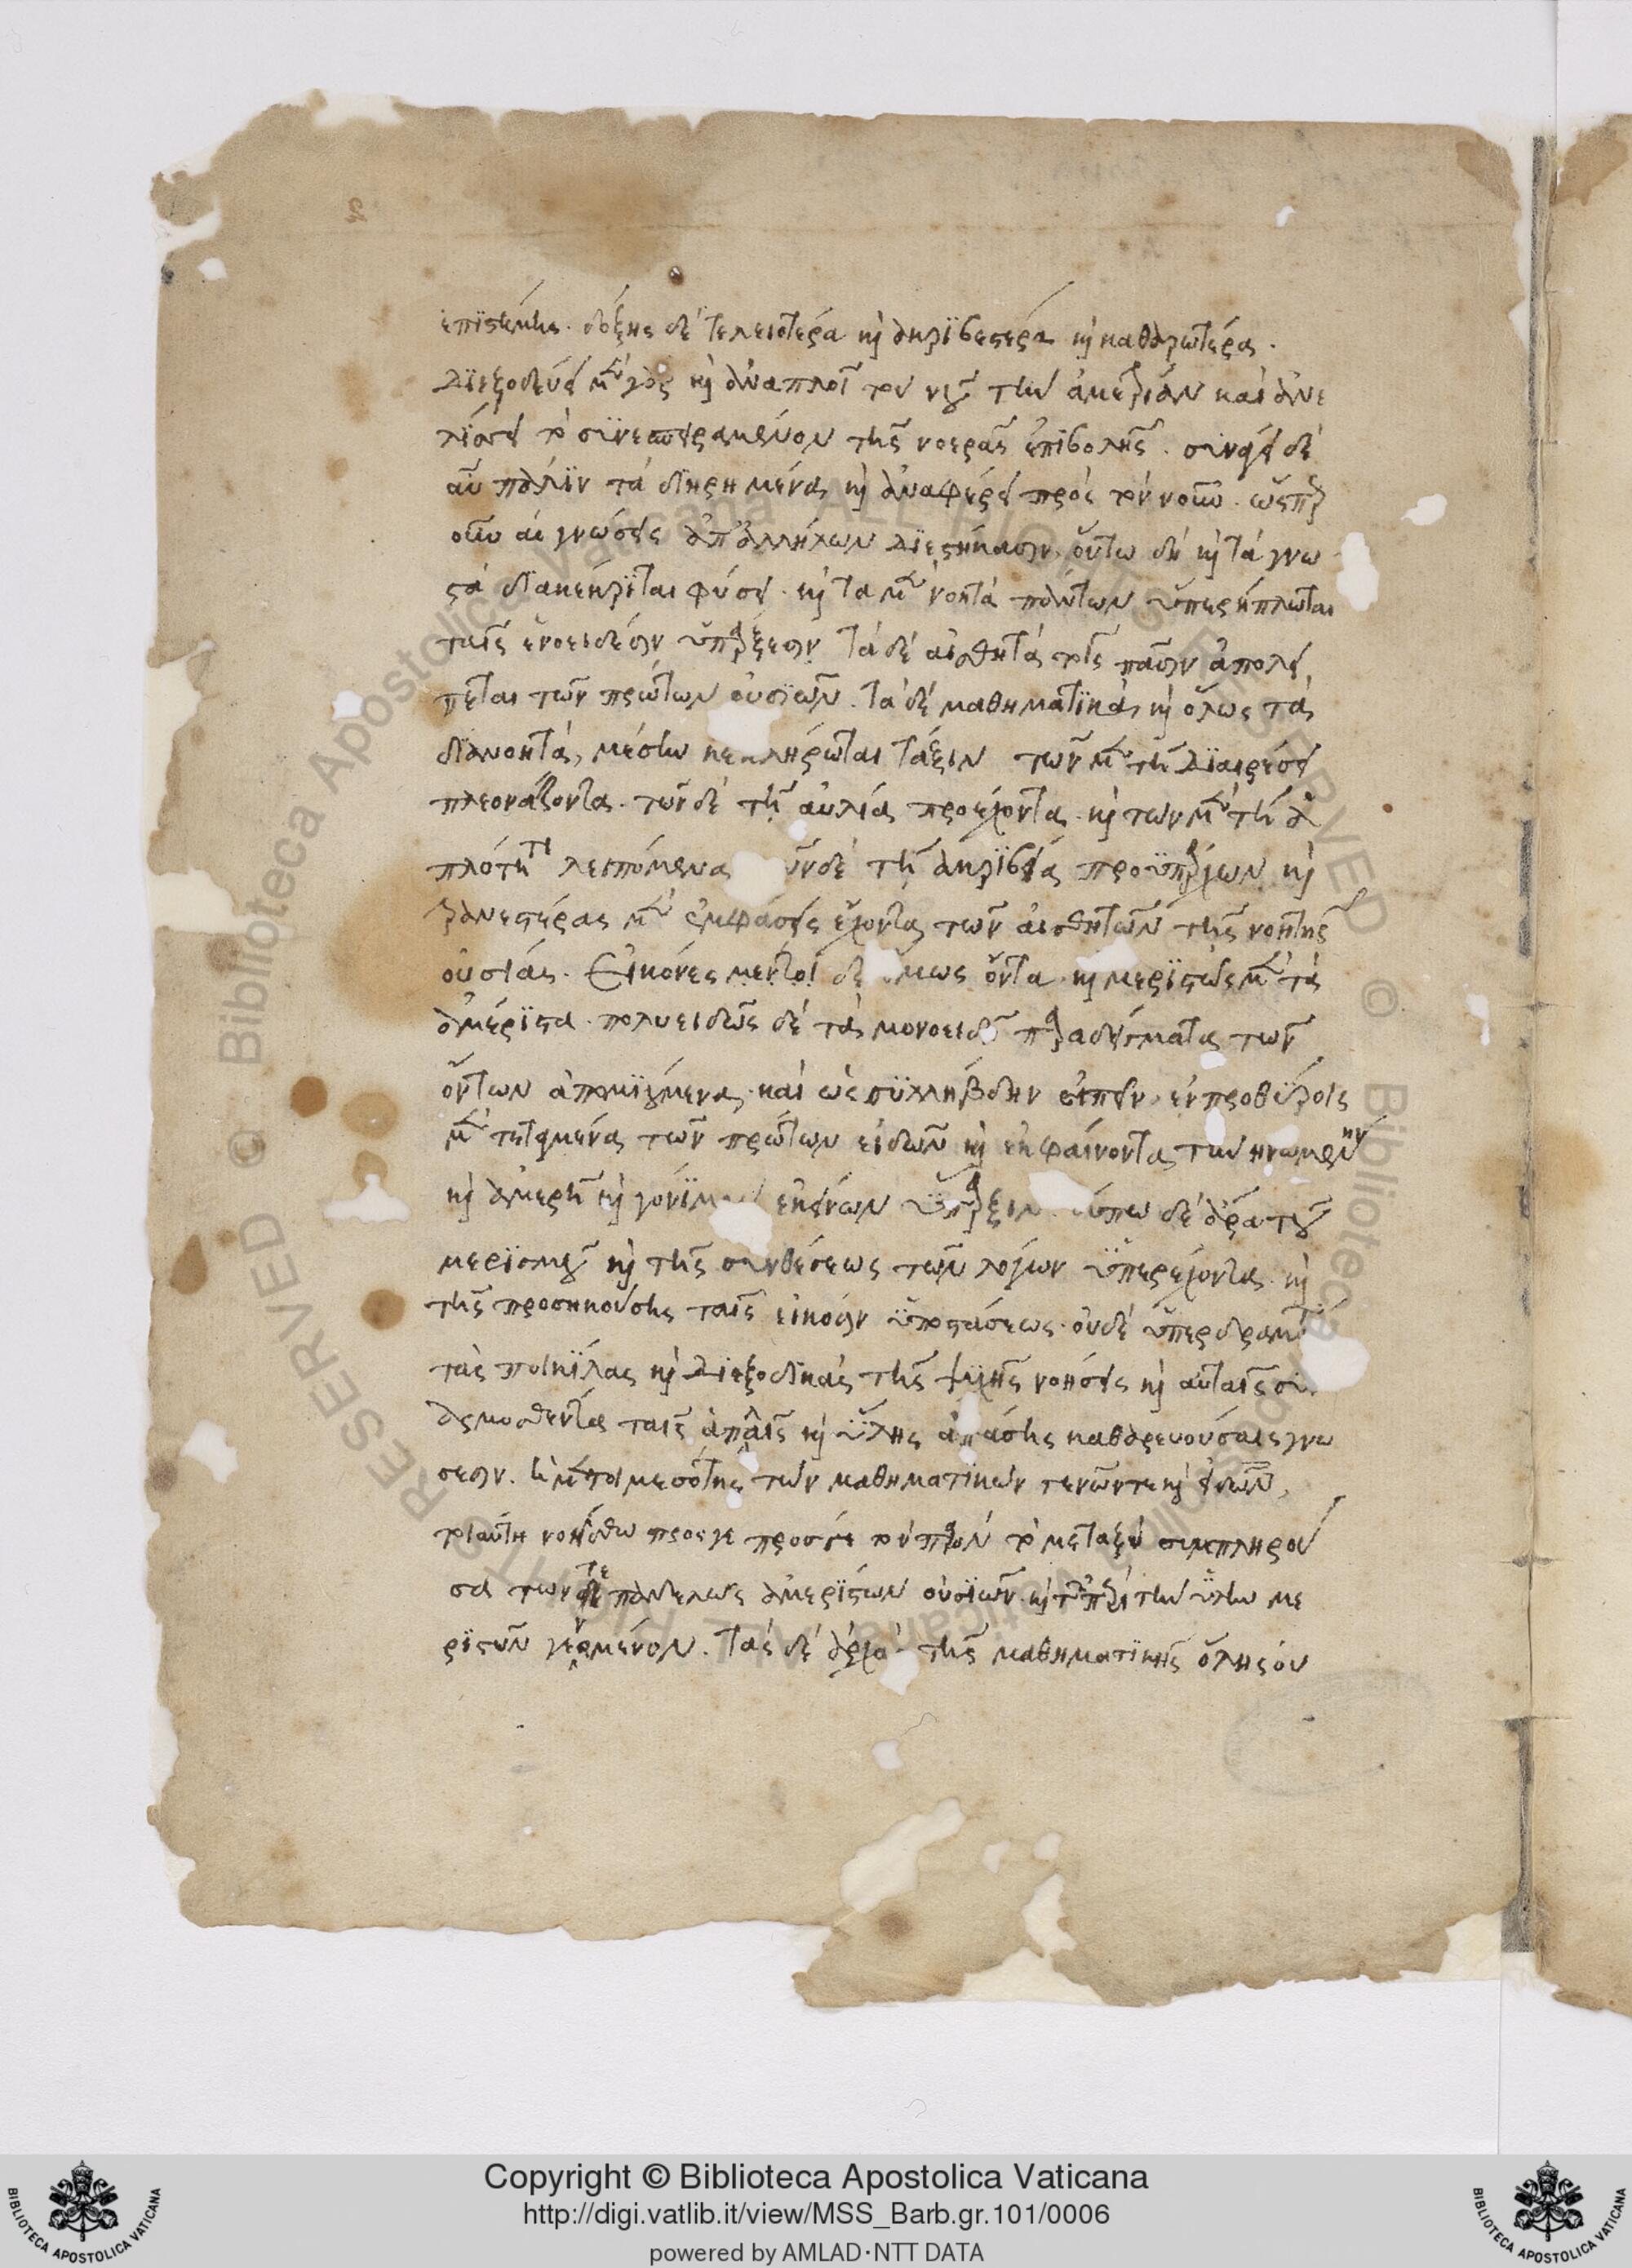 ἐπιστήμης. δόξης δὲ τελειοτέρα κὶ ἀκριβεστέρα κὶ καθαρωτέρα.
διεξοδεύει μὲν γὰρ κὶ ἀναπλοῖ τὸν νοῦ τὴν ἀμετρίαν καὶ ἀνε
λίσσει τὸ συνεσπειραμένον τῆς νοερᾶς ἐπιβολῆς. συνάγει δὲ
αὖ πάλιν τὰ διῃρημένα κὶ ἀναφέρει πρὸς τὸν νοῦν. ὥσπερ
οὖν αἱ γνώσεις ἀπ' ἀλλήλων διεστήκασιν, οὕτω δὴ κὶ τὰ γνω
στὰ διακέκριται φύσει. κὶ τὰ μὲν νοητὰ πάντων ὑπερήπλωται
ταῖς ἑνοειδέσιν ὑπάρξεσιν. τὰ δὲ αἰσθητὰ τοῖς πᾶσιν ἀπολεί
πεται τῶν πρώτων οὐσιῶν. τὰ δὲ μαθηματικὰ κὶ ὅλως τὰ
διανοητὰ, μέσην κεκλήρωται τάξιν τῶν μὲν τῇ διαιρέσει
πλεονάζοντα. τῶν δὲ τῇ ἀυλίᾳ προέχοντα. κὶ τῶν μὲν τῇ ἁ
πλότητι λειπόμενα ῶν δὲ τῇ ἀκριβείᾳ προϋπάρχων κὶ
τρανεστέρας μὲν ἐμφάσεις ἔχοντα τῶν αἰσθητῶν τῆς νοητῆς
οὐσίας. Εἰκόνες μέντοι δὲ μως ὄντα. κὶ μεριστῶς μὲν τὰ
ἀμέριστα. πολυειδῶς δὲ τὰ μονοειδῆ παραδείγματα τῶν
ὄντων ἀπεικιζόμενα. καὶ ὡς συλλήβδην εἰπεῖν. ἐν προθύροις
μὲν τεταγμένα τῶν πρώτων εἰδῶν κὶ ἐκφαίνοντα τὴν ἡνωμένην
κὶ ἀμερῆ κὶ γόνιμο ἐκείνων ὕπαρξιν ὔπω δὲ ἄρα τοῦ
μερισμοῦ κὶ τῆς συνθέσεως τῶν λόγων ὑπερέχοντα. κὶ
τῆς προσηκούσης ταῖς εἰκόσιν ὑποστάσεως. οὐδὲ ὑπερδραμό
τὰς ποικίλας κὶ διεξοδικὰς τῆς ψυχῆς νοήσεις κὶ αὐταῖς συ
αρμοσθέντα ταῖς ἁπλαῖς κὶ ὕλης ἁπάσης καθαρευούσαις γνω
σεσιν. ἡ μὲν οὖν μεσότης τῶν μαθηματικῶν γενῶν τε κὶ εἰδῶν,
τοιαύτη νοείσθω πρός γε προσεῖτε τὸ παρὸν τὸ μεταξὺ συμπληροῦ
σα τῶν τε παντελῶς ἀμερίστων οὐσιῶν. κὶ τῶν περὶ τὴν ὕλην με
ριστῶν γενομένων. Τὰς δὲ ἀρχὰς τῆς μαθηματικῆς ὅλης οὐ
Copyright © Biblioteca Apostolica Vaticana
http://digi.vatlib.it/view/MSS_Barb.gr.101/0006
powered by AMLAD·NTT DATA